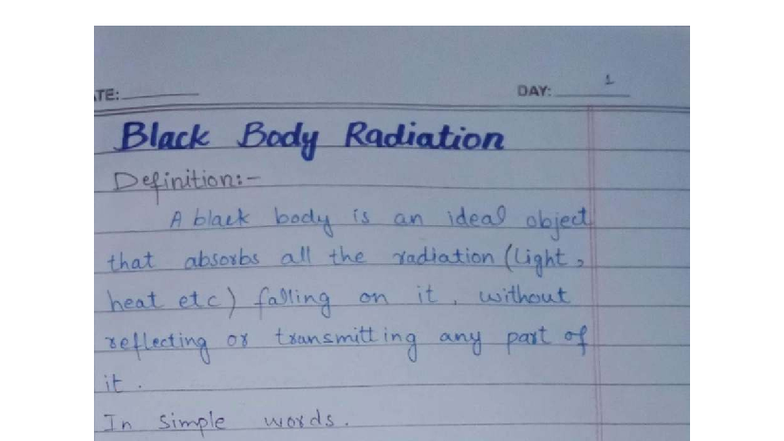 ATE:
DAY: 1
Black Body Radiation
Definition:-
A black body is an ideal object
that absorbs all the radiation (light,
heat etc) falling on it, without
reflecting or transmitting any part of
it.
In simple words.